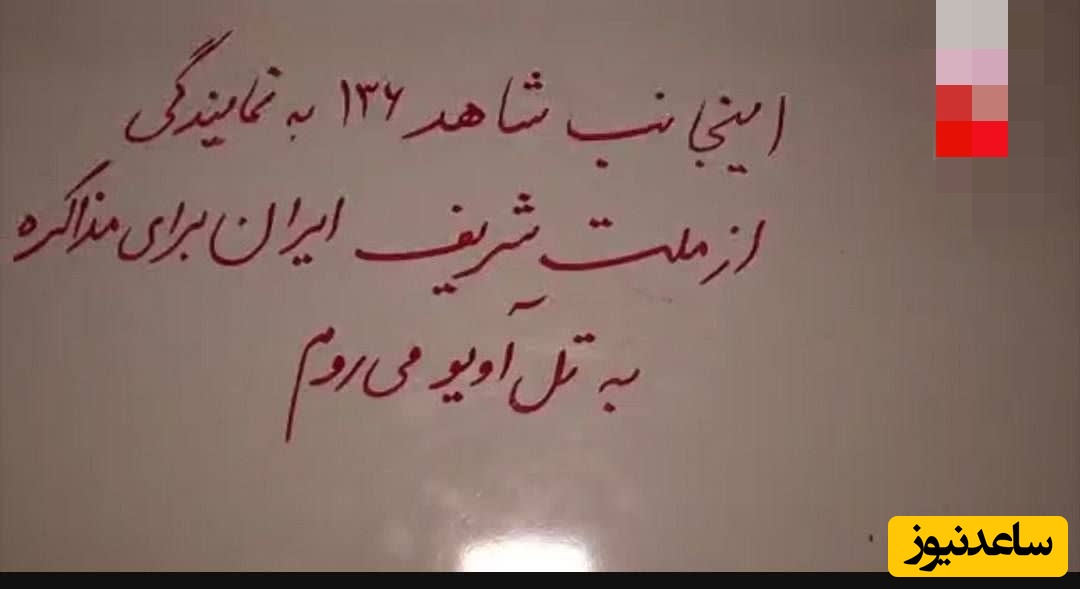 اینجانب شاهد ۱۳۶ به نمایندگی
از ملت شریف ایران برای مذاکره
به تل آویو می‌روم
ساعدنیوز